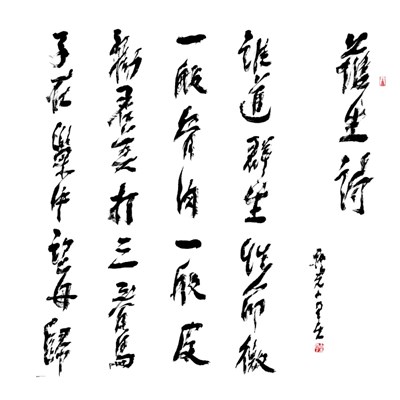 護生詩
誰道群生性命微
一般骨肉一般皮
勸君莫打三春鳥
子在巢中望母歸